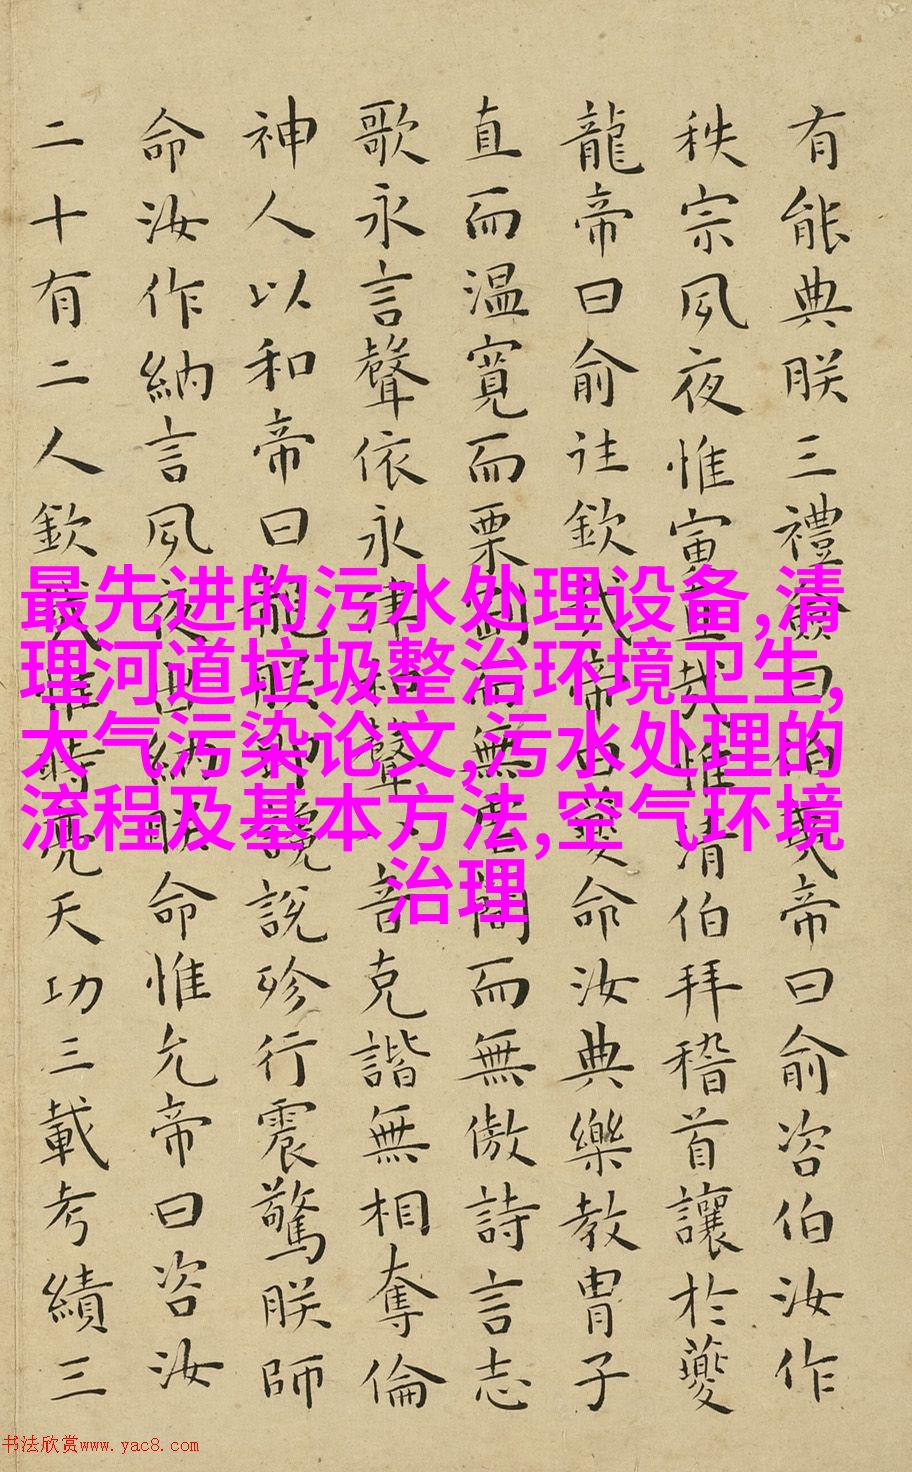 有能典朕三禮僉曰伯夷帝曰俞咨伯汝作
秩宗夙夜惟寅直哉惟清伯拜稽首讓於夔
龍帝曰俞往欽哉帝曰夔命汝典樂教胄子
直而温寬而栗剛而無虐簡而無傲詩言志
歌永言聲依永律和聲八音克諧無相奪倫
神人以和帝曰龍朕堲讒說殄行震驚朕師
命汝作納言夙夜出納朕命惟允帝曰咨汝
二十有二人欽哉惟時亮天功三載考績三
最先进的污水处理设备,清
理河道垃圾整治环境卫生,
大气污染论文,污水处理的
流程及基本方法,空气环境
治理
书法欣赏www.yac8.com